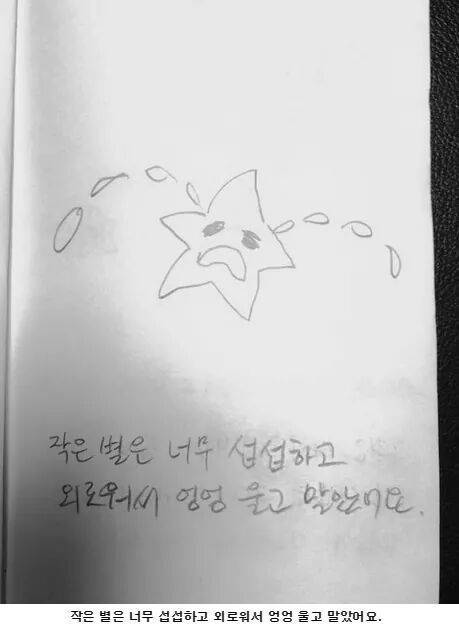 작은 별은 너무 섭섭하고
외로워서 엉엉 울고 말았어요.
작은 별은 너무 섭섭하고 외로워서 엉엉 울고 말았어요.